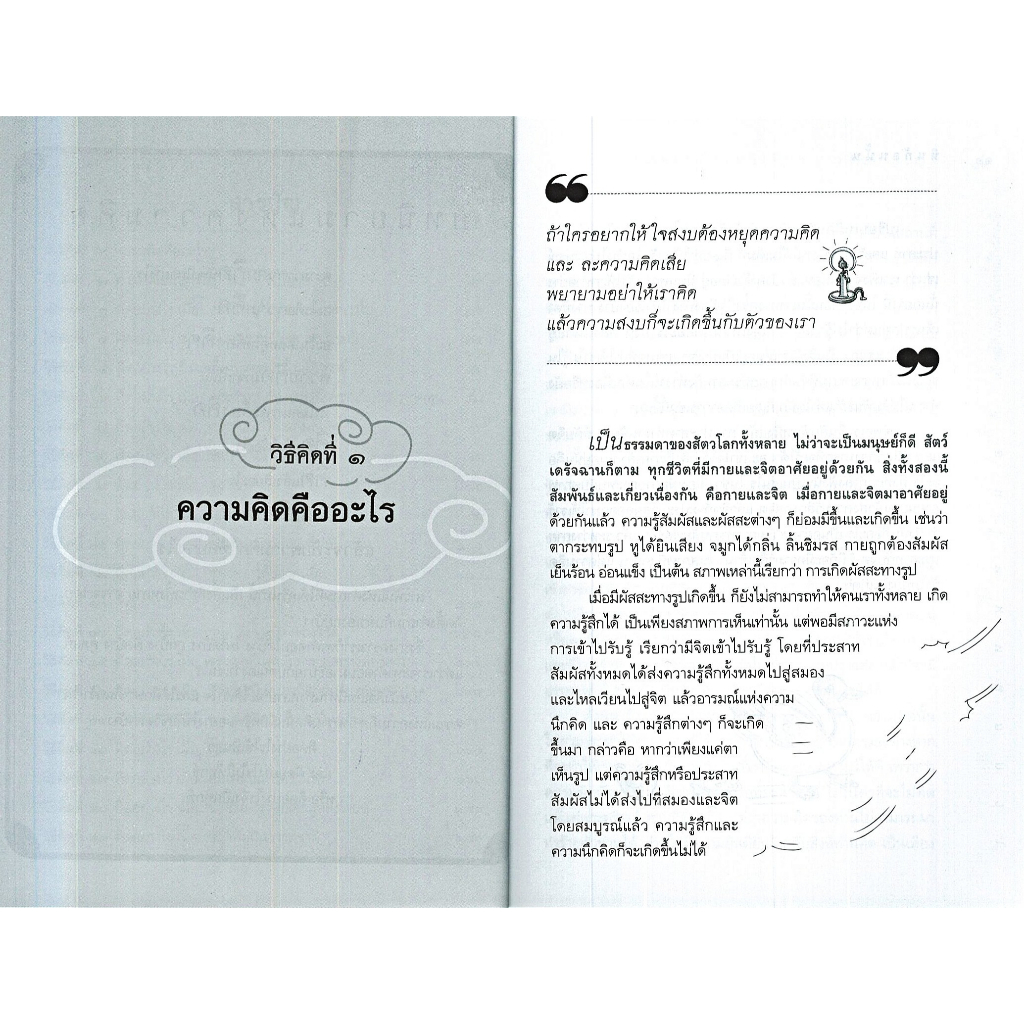 วิธีคิดที่ ๑
ความคิดคืออะไร
ถ้าใครอยากให้ใจสงบต้องหยุดความคิด
และ ละความคิดเสีย
พยายามอย่าให้เราคิด
แล้วความสงบก็จะเกิดขึ้นกับตัวของเรา
เป็นธรรมดาของสัตวโลกทั้งหลาย ไม่ว่าจะเป็นมนุษย์ก็ดี สัตว์
เดรัจฉานก็ตาม ทุกชีวิตที่มีกายและจิตอาศัยอยู่ด้วยกัน สิ่งทั้งสองนี้
สัมพันธ์และเกี่ยวเนื่องกัน คือกายและจิต เมื่อกายและจิตมาอาศัยอยู่
ด้วยกันแล้ว ความรู้สัมผัสและผัสสะต่างๆ ก็ย่อมมีขึ้นและเกิดขึ้น เช่นว่า
ตากระทบรูป หูได้ยินเสียง จมูกได้กลิ่น ลิ้นชิมรส กายถูกต้องสัมผัส
เย็นร้อน อ่อนแข็ง เป็นต้น สภาพเหล่านี้เรียกว่า การเกิดผัสสะทางรูป
เมื่อมีผัสสะทางรูปเกิดขึ้น ก็ยังไม่สามารถทำให้คนเราทั้งหลาย เกิด
ความรู้สึกได้ เป็นเพียงสภาพการเห็นเท่านั้น แต่พอมีสภาวะแห่ง
การเข้าไปรับรู้ เรียกว่ามีจิตเข้าไปรับรู้ โดยที่ประสาท
สัมผัสทั้งหมดได้ส่งความรู้สึกทั้งหมดไปสู่สมอง
และไหลเวียนไปสู่จิต แล้วอารมณ์แห่งความ
นึกคิด และ ความรู้สึกต่างๆ ก็จะเกิด
ขึ้นมา กล่าวคือ หากว่าเพียงแค่ตา
เห็นรูป แต่ความรู้สึกหรือประสาท
สัมผัสไม่ได้ส่งไปที่สมองและจิต
โดยสมบูรณ์แล้ว ความรู้สึกและ
ความนึกคิดก็จะเกิดขึ้นไม่ได้